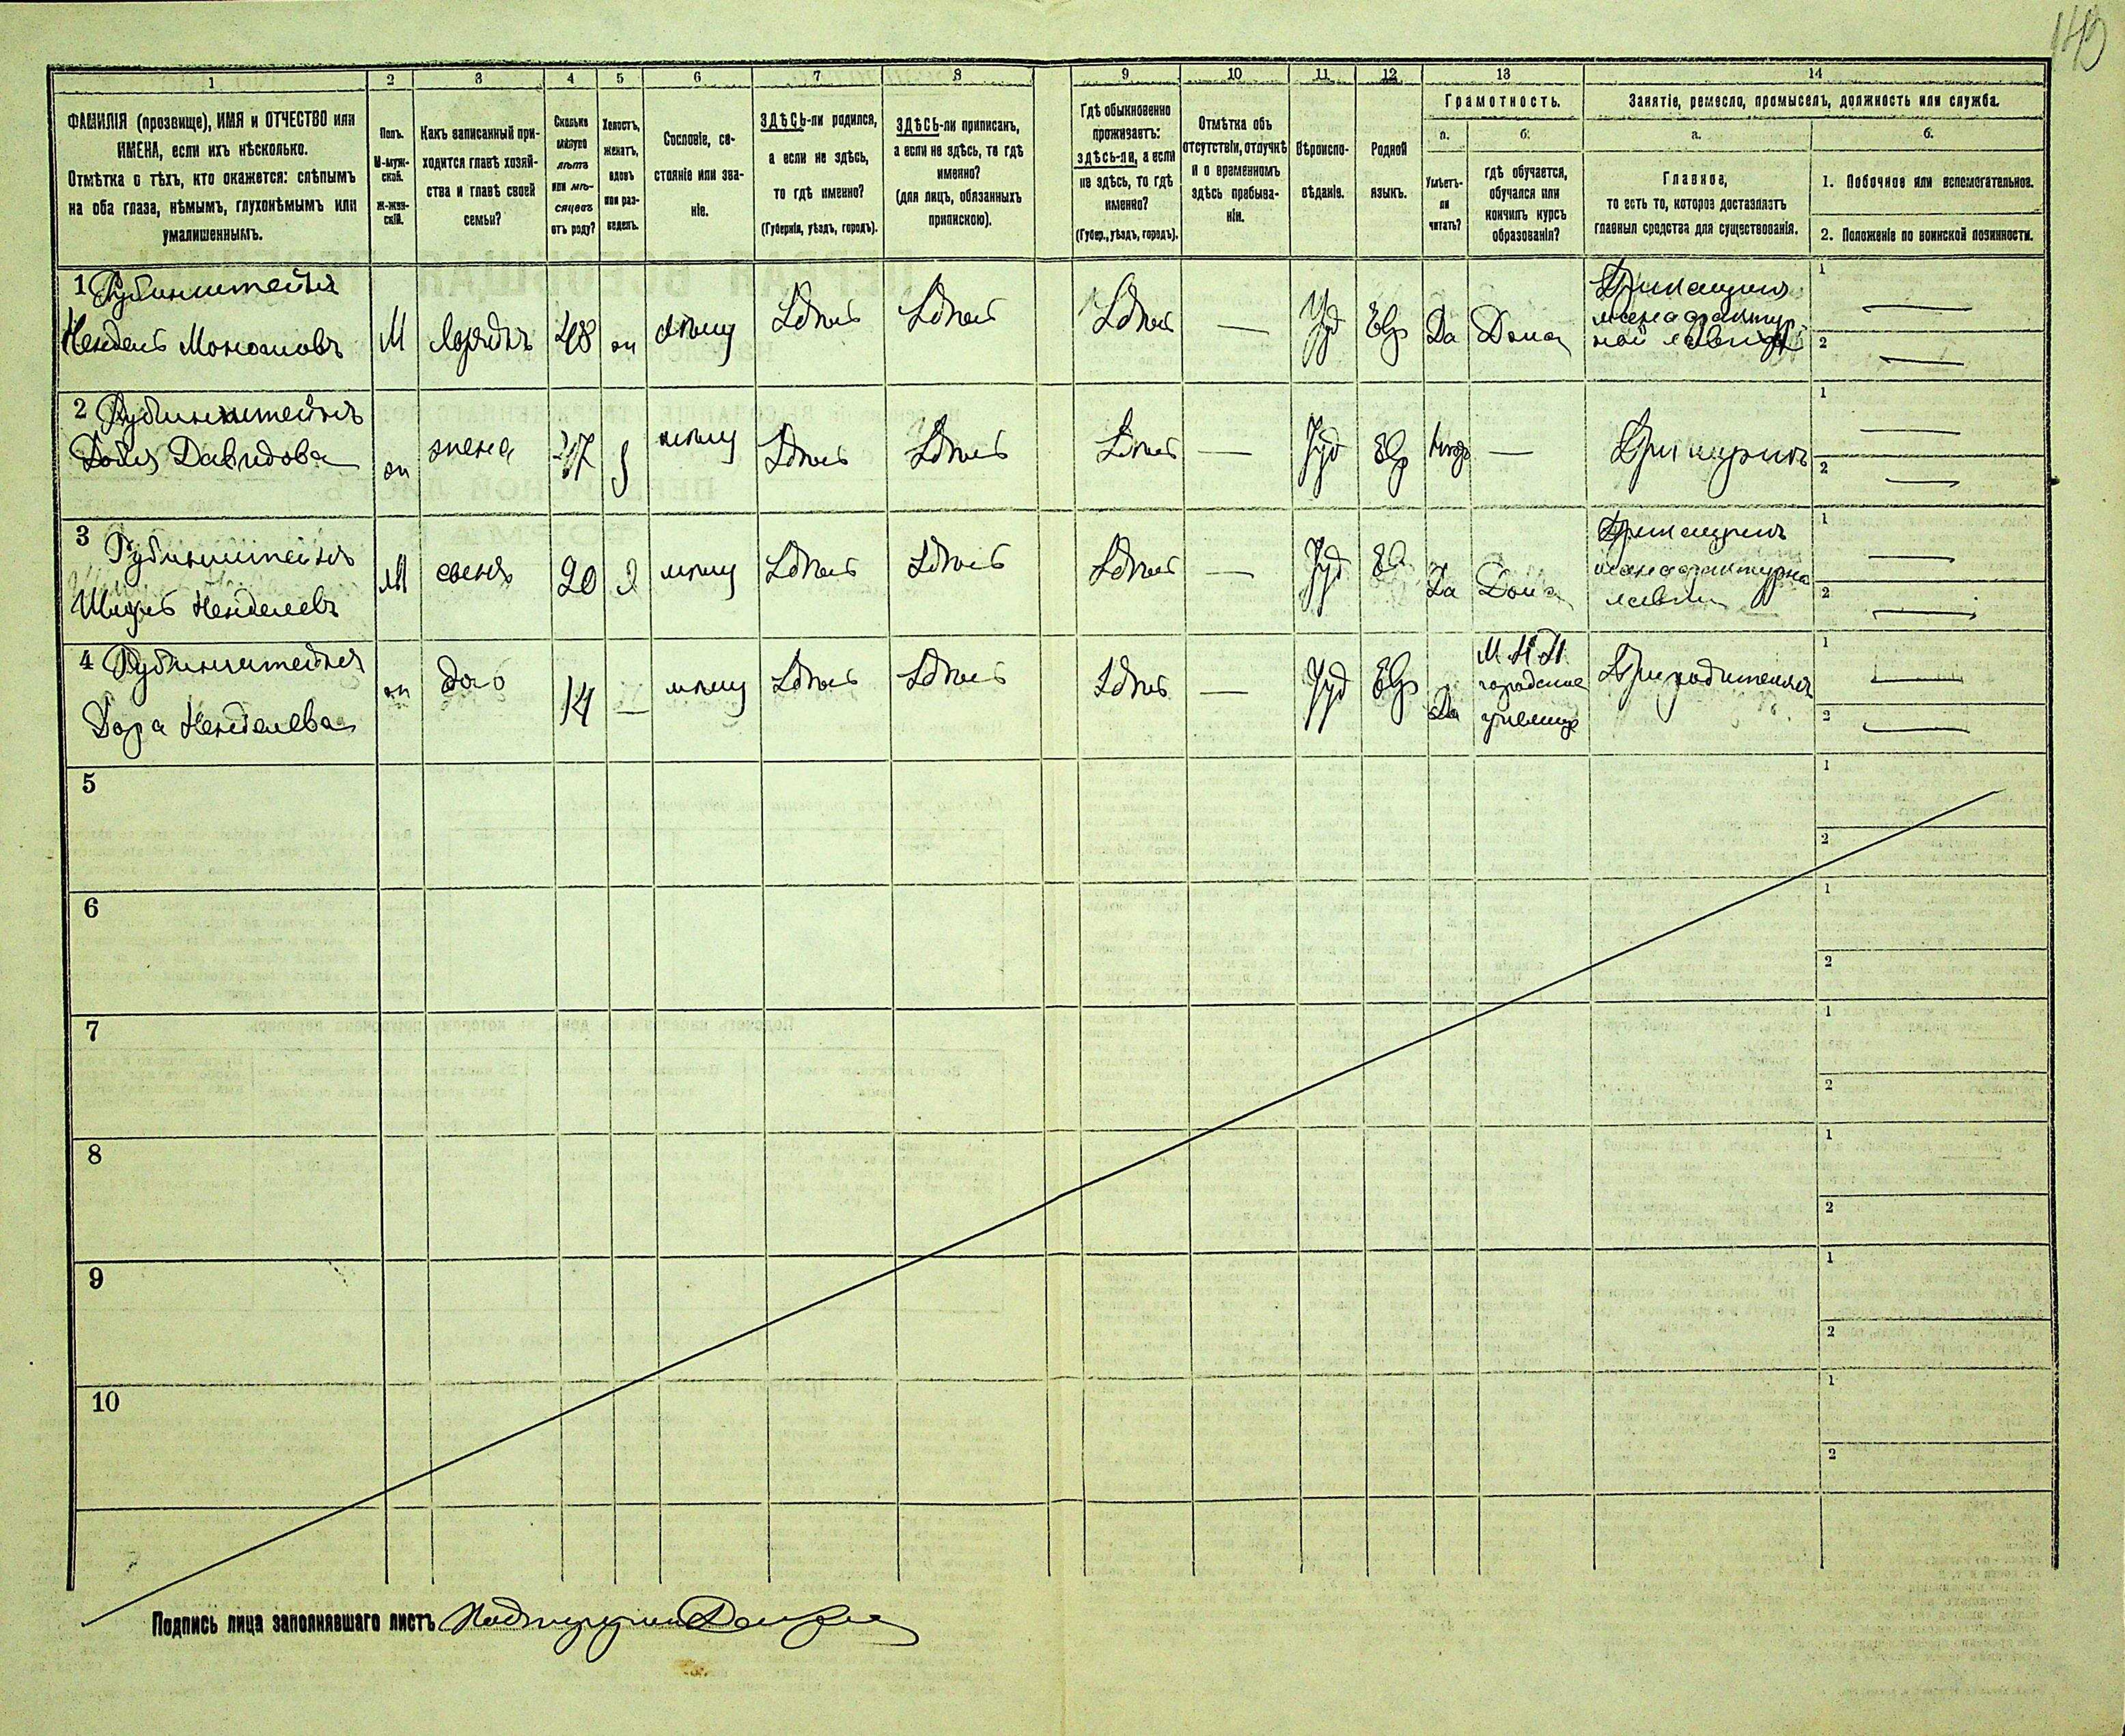 149
1 2 3 4 5 6 7 8 9 10 11 12 13 14
ФАМИЛІЯ (прозвище), ИМЯ и ОТЧЕСТВО или
ИМЕНА, если ихъ нѣсколько.
Отмѣтка о тѣхъ, кто окажется: слѣпымъ
на оба глаза, нѣмымъ, глухонѣмымъ или
умалишеннымъ.
Полъ.
М-муж-
ской.
Ж-жен-
скій.
Какъ записанный при-
ходится главѣ хозяй-
ства и главѣ своей
семьи?
Сколько
минуло
лѣтъ
или мѣ-
сяцевъ
отъ роду?
Холостъ,
женатъ,
вдовъ
или раз-
веденъ.
Сословіе, со-
стояніе или зва-
ніе.
ЗДѢСЬ-ли родился,
а если не здѣсь,
то гдѣ именно?
(Губернія, уѣздъ, городъ).
ЗДѢСЬ-ли приписанъ,
а если не здѣсь, то гдѣ
именно?
(для лицъ, обязанныхъ
припискою).
Гдѣ обыкновенно
проживаетъ:
здѣсь-ли, а если
не здѣсь, то гдѣ
именно?
(Губер., уѣздъ, городъ).
Отмѣтка объ
отсутствіи, отлучкѣ
и о временномъ
здѣсь пребыва-
ніи.
Вѣроиспо-
вѣданіе.
Родной
языкъ.
Грамотность.
а. б.
Умѣетъ-
ли
читать?
гдѣ обучается,
обучался или
кончилъ курсъ
образованія?
Занятіе, ремесло, промыселъ, должность или служба.
а. б.
Главное,
то есть то, которое доставляетъ
главныя средства для существованія.
1. Побочное или вспомогательное.
2. Положеніе по воинской повинности.
1 Рубинштейнъ
Мендель М
48 Здѣсь Здѣсь Здѣсь — Іуд Евр Да Дома
Прикащикъ
мануфактур
ной лавки
1 —
2 —
2 Рубинштейнъ
Давидова
жена Здѣсь Здѣсь Здѣсь — Іуд Евр —
1 —
2 —
3 Рубинштейнъ
Менделевъ
М сынъ 20 Здѣсь Здѣсь Здѣсь — Іуд Евр Да Дома
Прикащикъ
мануфактурно
лавки
1 —
2 —
4 Рубинштейнъ
Дора Менделева
14 — Здѣсь Здѣсь Здѣсь — Іуд Евр Да
городское
училище
При родителяхъ
1 —
2 —
5 1 2
6 1 2
7 1 2
8 1 2
9 1 2
10 1 2
Подпись лица заполнявшаго листъ